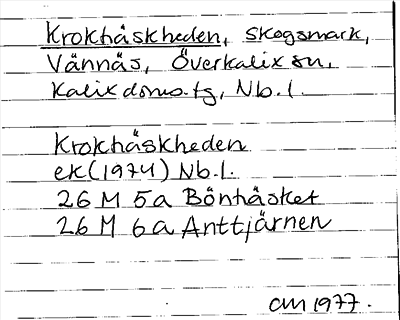 Krokhåskheden, Skogsmark,
Vännäs, Överkalix sn,
Kalix doms.tg, Nb.l.
Krokhåskheden
ek(1974) Nb.l.
26 M 5a Bönhåsket
26 M 6a Anttjärnen
am 1977.